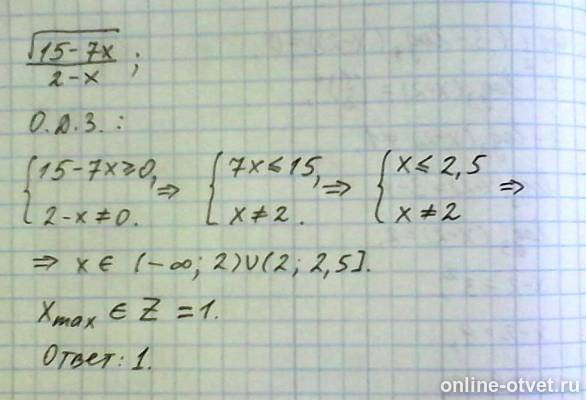 √15-7x / 2-x ;
О.Д.З. :
{ 15-7x≥0, 2-x≠0. ⇒ { 7x≤15, x≠2. ⇒ { x≤2,5 x≠2 ⇒
⇒ x∈ (-∞; 2)∪(2; 2,5].
Xmax ∈ Z = 1.
Ответ: 1.
online-otvet.ru